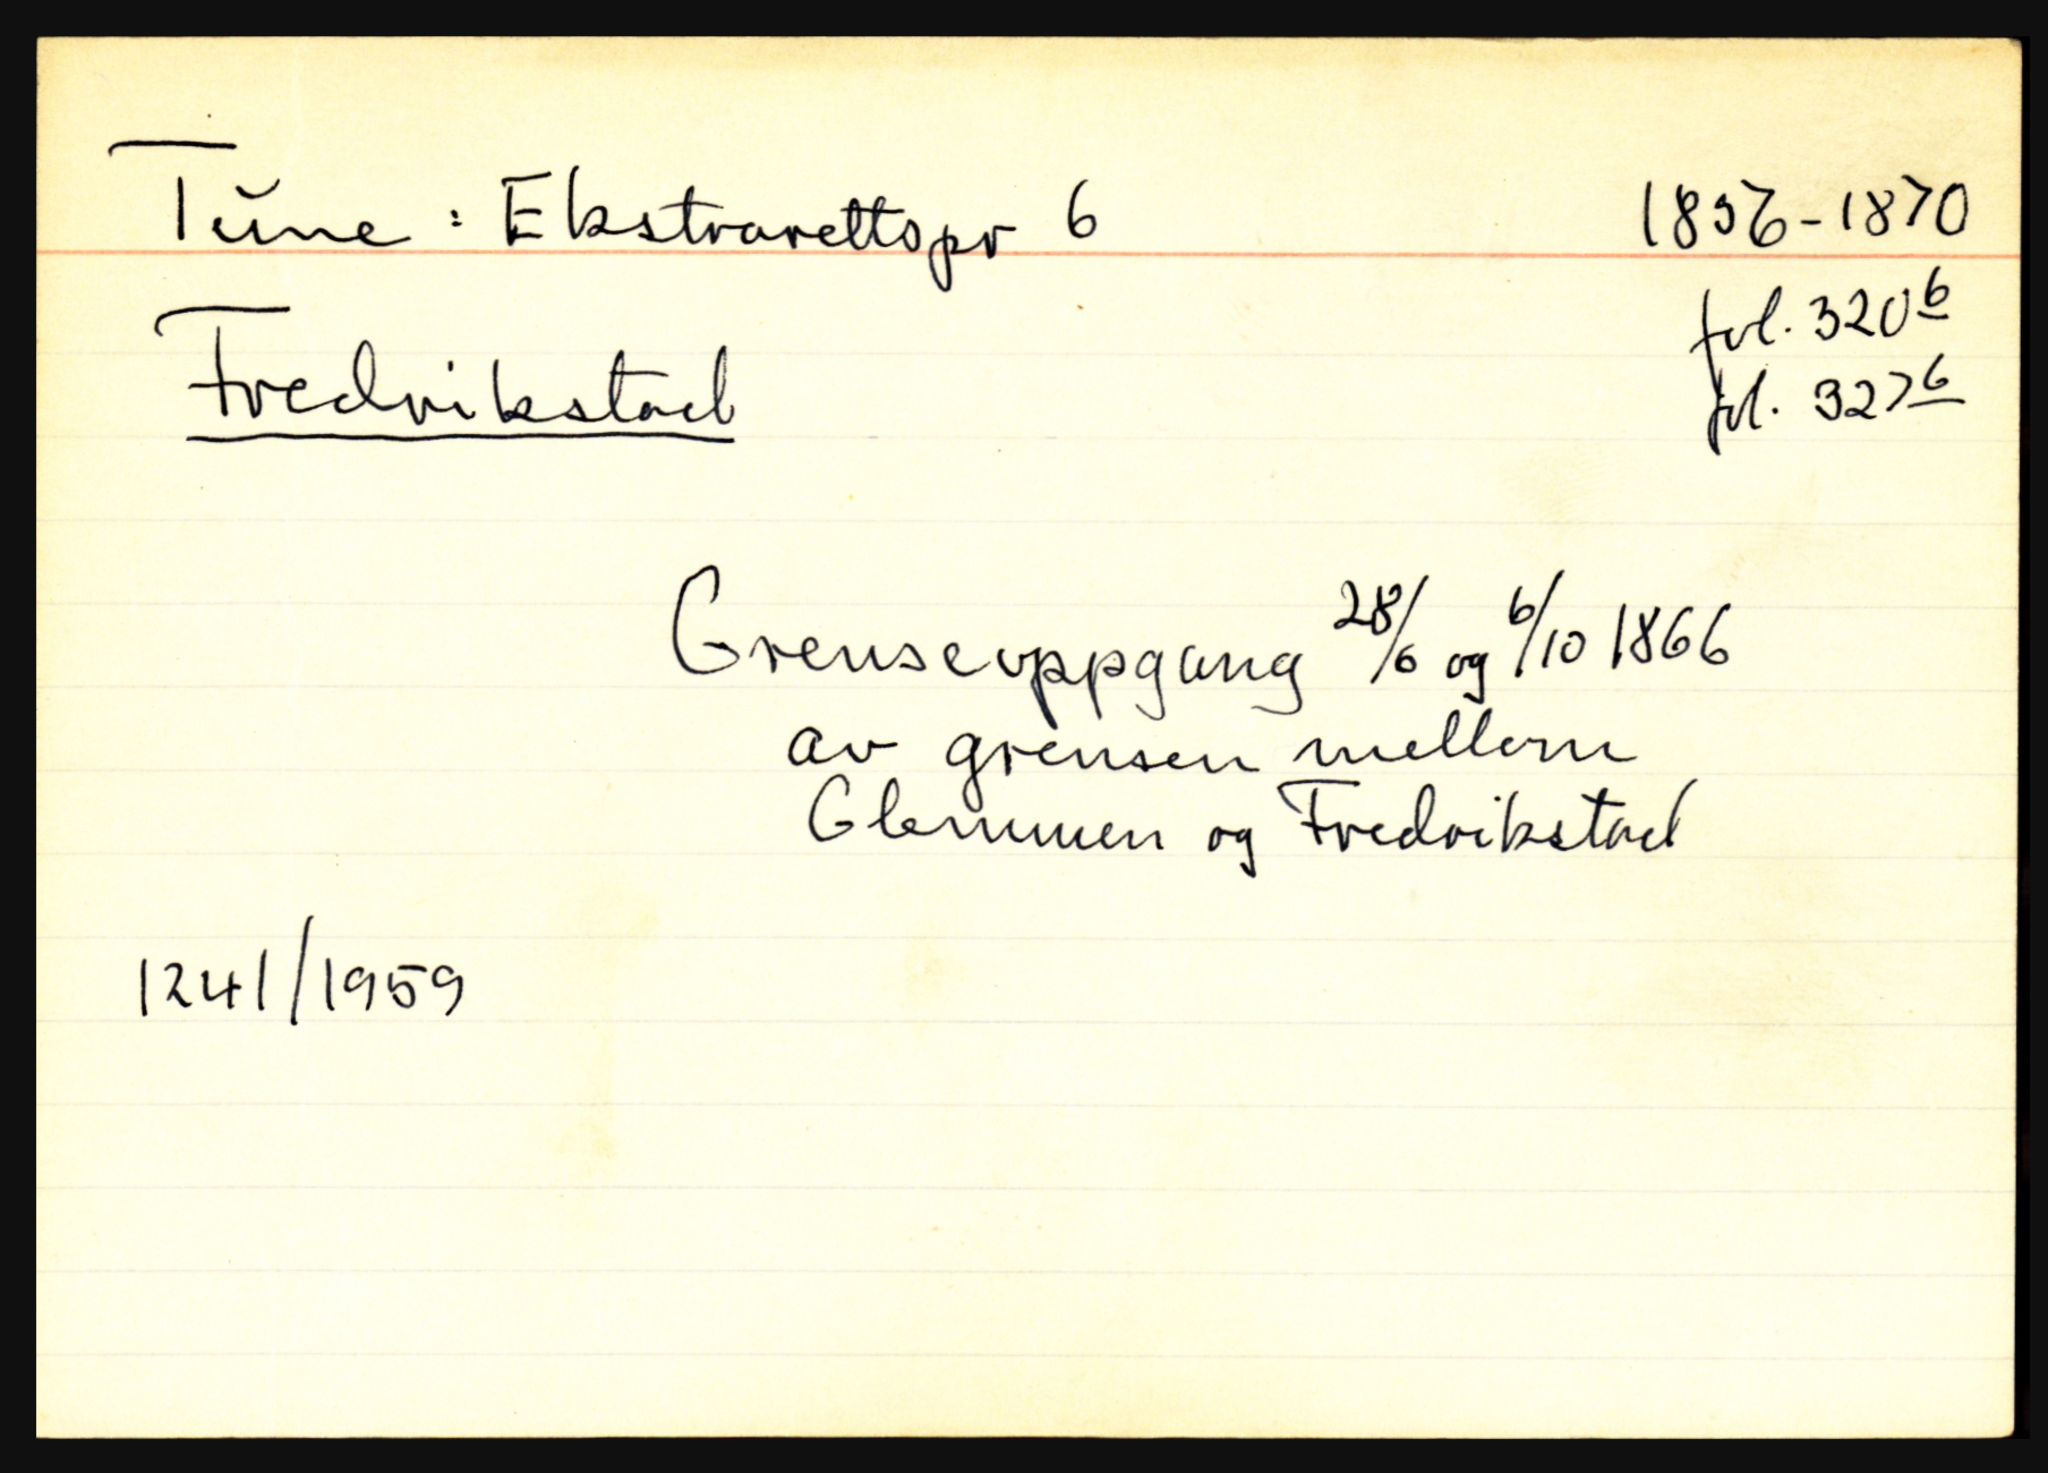 Tune : Ekstrarettspr 6 1856-1870
fol. 320 b
fol. 327 b
Fredrikstad
Grenseoppgang 28/6 og 6/10 1866
av grensen mellem
Glemmen og Fredrikstad
1241/1959